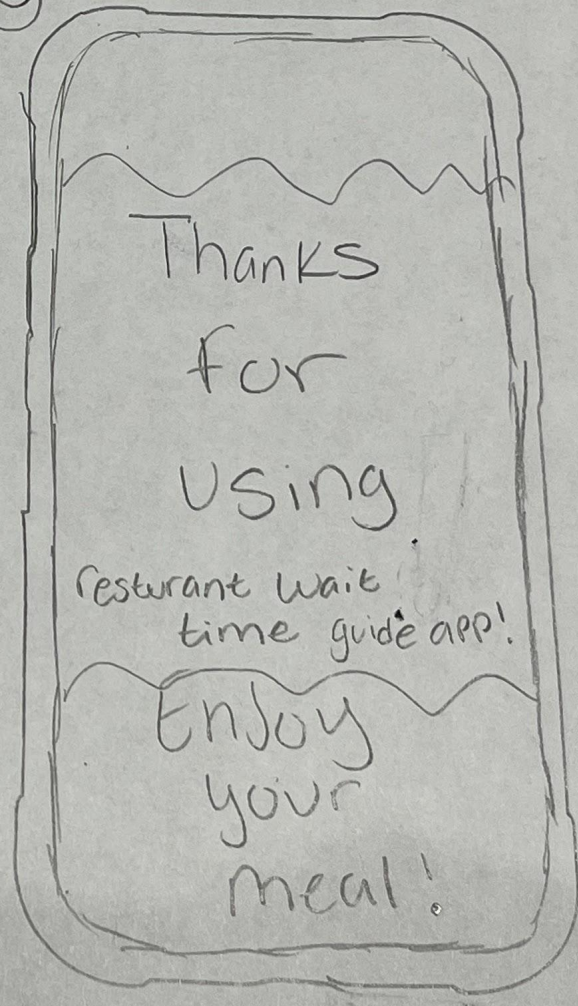 Thanks
for
using
resturant wait
time guide app!
Enjoy
your
meal!